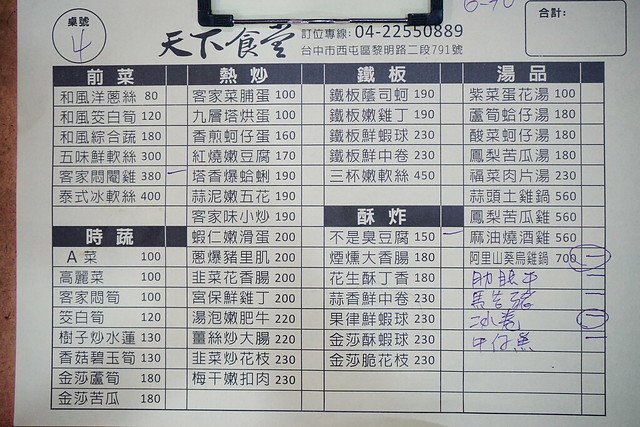 桌號
4
天下食堂
訂位專線: 04-22550889
台中市西屯區黎明路二段791號
合計:
前菜
和風洋蔥絲 80
和風筊白筍 120
和風綜合蔬 180
五味鮮軟絲 300
客家悶閹雞 380 一
泰式冰軟絲 400
時蔬
A菜 100
高麗菜 100
客家悶筍 100
筊白筍 120
樹子炒水蓮 130
香菇碧玉筍 130
金莎蘆筍 180
金莎苦瓜 180
熱炒
客家菜脯蛋 100
九層塔烘蛋 100
香煎蚵仔蛋 160
紅燒嫩豆腐 170
塔香爆蛤蜊 190
蒜泥嫩五花 190
客家味小炒 190
蝦仁嫩滑蛋 200
蔥爆豬里肌 200
韭菜花香腸 200
宮保鮮雞丁 200
湯泡嫩肥牛 220
薑絲炒大腸 220
韭菜炒花枝 230
梅干嫩扣肉 230
鐵板
鐵板蔭司蚵 190
鐵板嫩雞丁 190
鐵板鮮蝦球 230
鐵板鮮中卷 230
三杯嫩軟絲 450
酥炸
不是臭豆腐 150 一
煙燻大香腸 180
花生酥丁香 180
蒜香鮮中卷 230
果律鮮蝦球 230
金莎酥蝦球 230
金莎脆花枝 230
湯品
紫菜蛋花湯 100
蘆筍蛤仔湯 180
酸菜蚵仔湯 180
鳳梨苦瓜湯 180
福菜肉片湯 230
蒜頭土雞鍋 560
鳳梨苦瓜雞 560
麻油燒酒雞 560
阿里山葵烏雞鍋 700 一